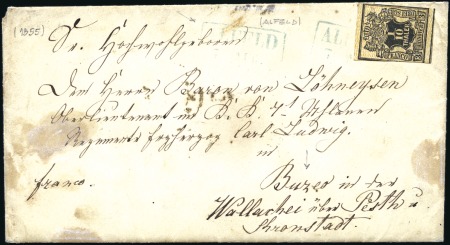 (1855)
(ALFELD)
ALFELD
Sr. Hochwohlgeboren
Dem Herrn Baron von Löhneysen
Oberlieutenant im K. K. 7t Uhlanen
Regimente Erzherzog Carl Ludwig.
in
franco.
Buzeo in der
Wallachei über Pesth u
Kronstadt.